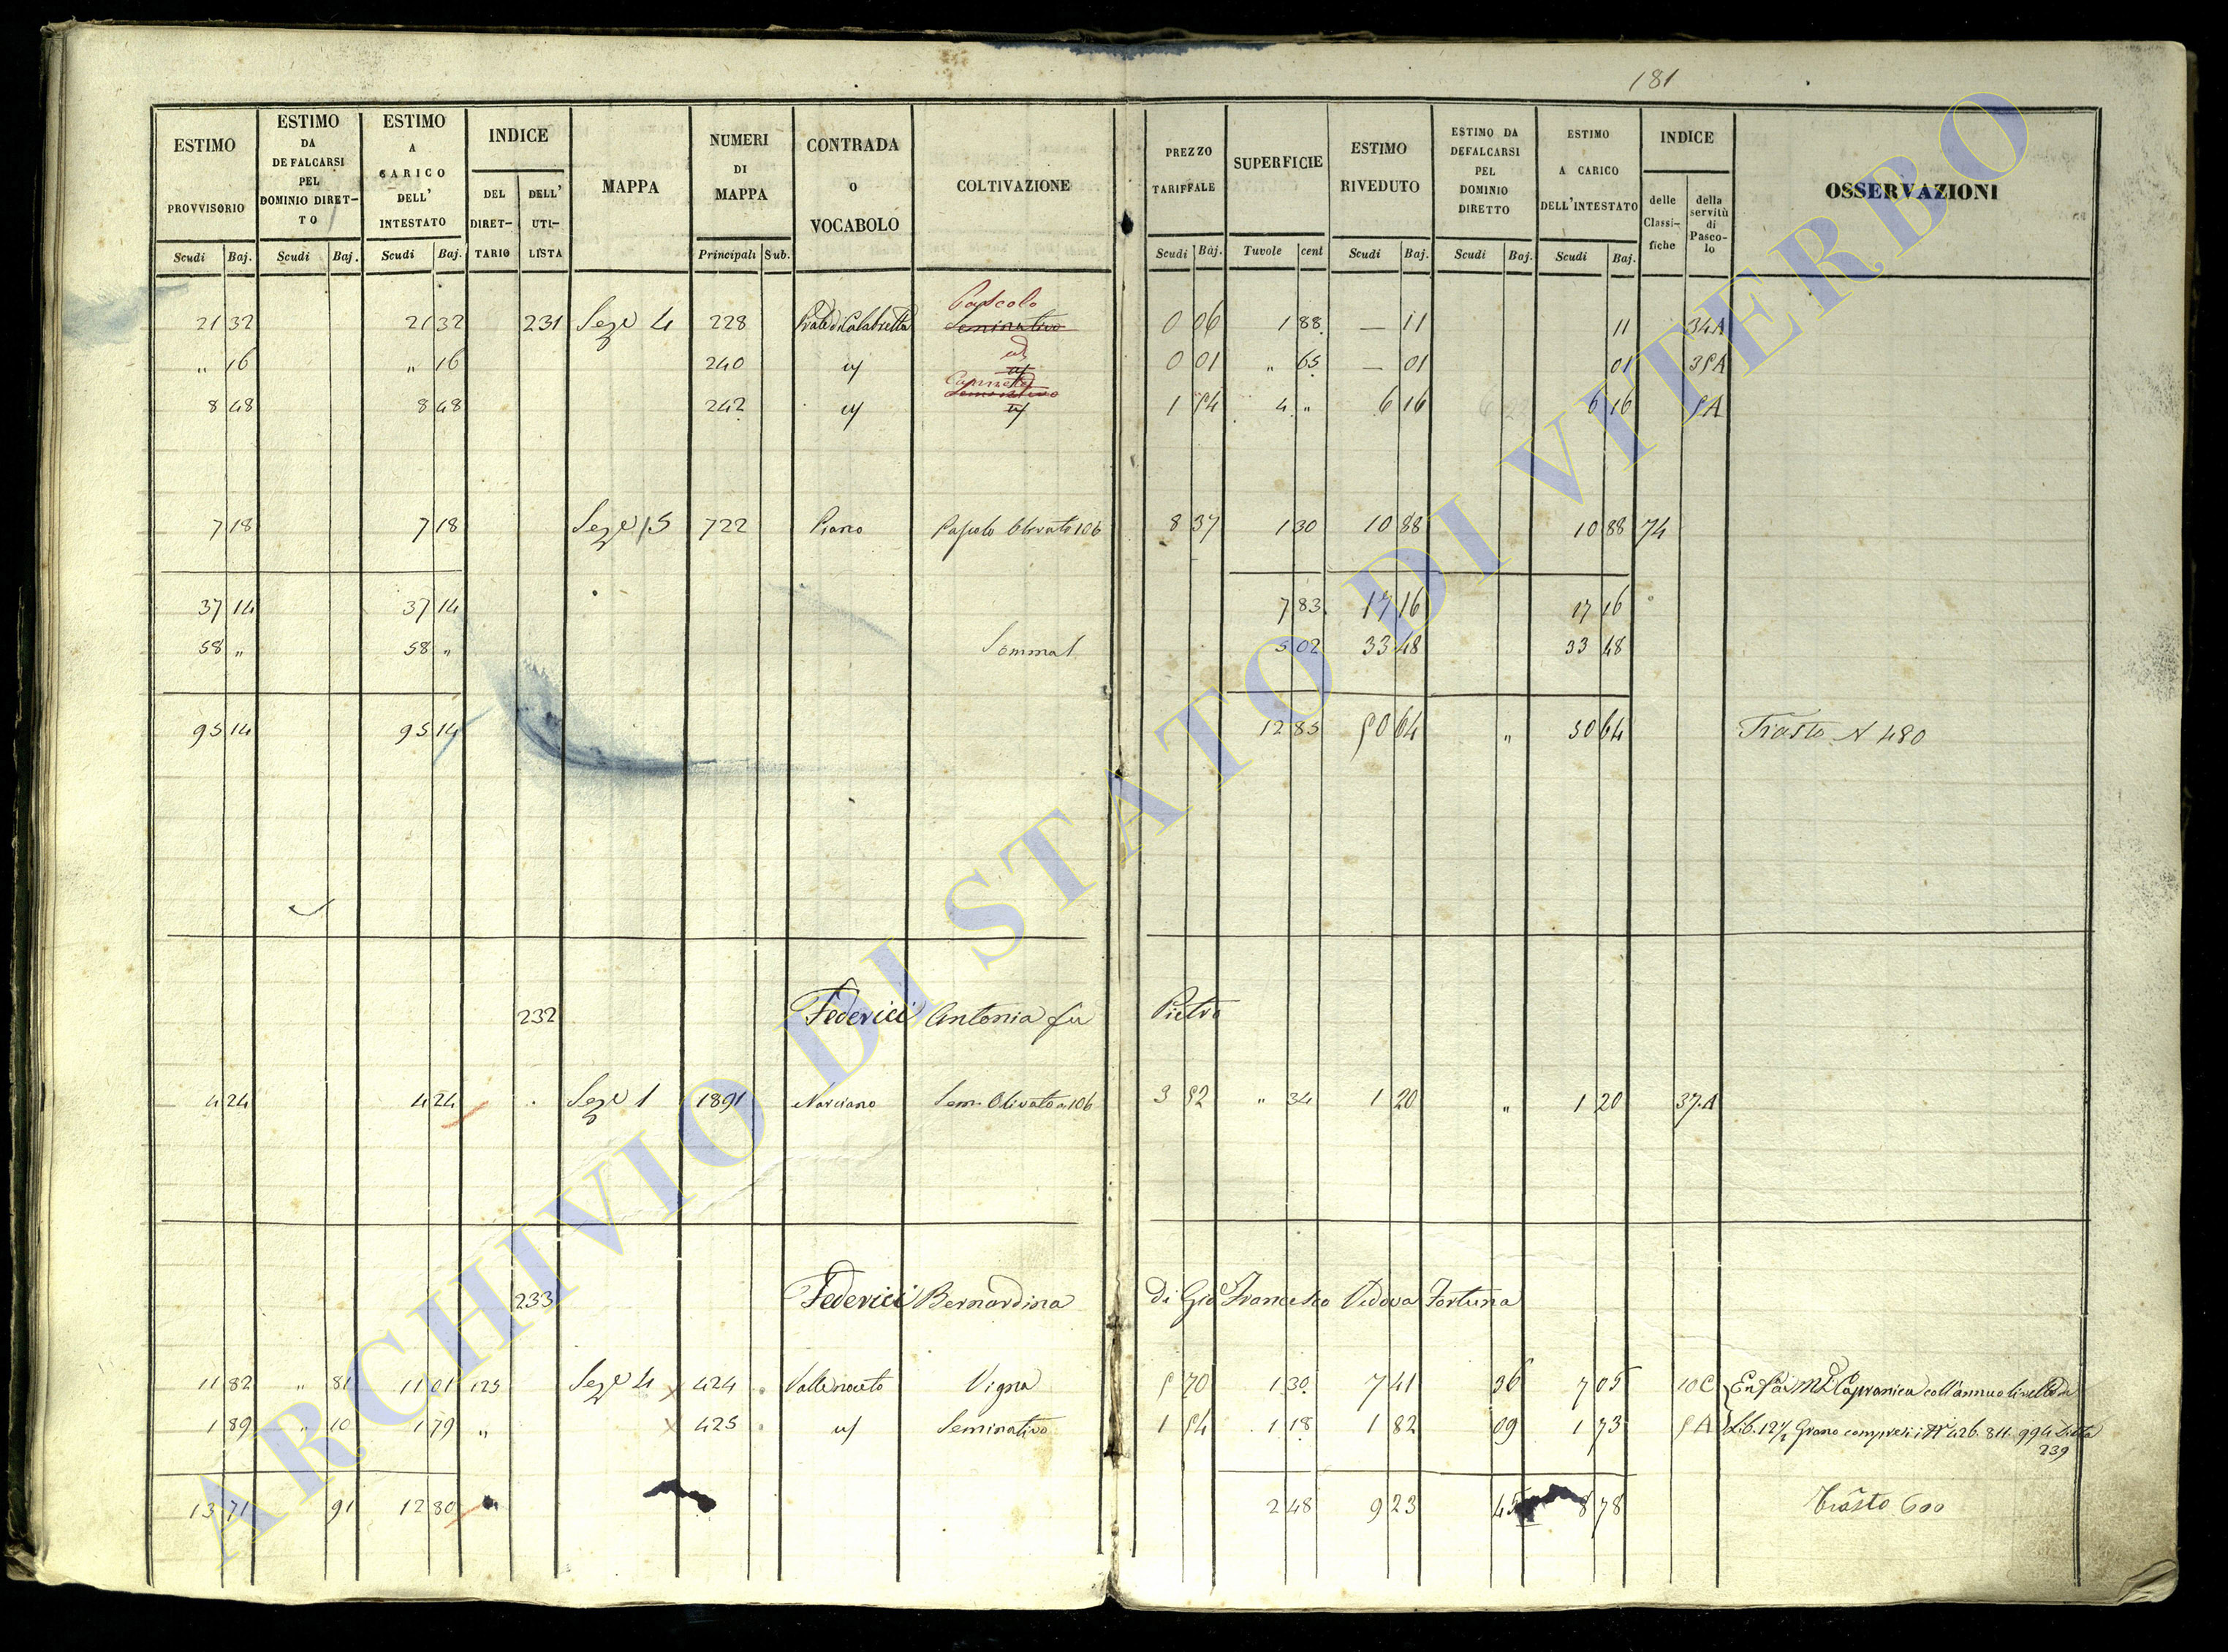 181
ESTIMO PROVVISORIO Scudi Baj.
ESTIMO DA DEFALCARSI PEL DOMINIO DIRET-TO Scudi Baj.
ESTIMO A CARICO DELL' INTESTATO Scudi Baj.
INDICE DEL DIRET-TARIO DELL' UTI-LISTA
MAPPA
NUMERI DI MAPPA Principali Sub.
CONTRADA O VOCABOLO
COLTIVAZIONE
PREZZO TARIFFALE Scudi Baj.
SUPERFICIE Tavole cent
ESTIMO RIVEDUTO Scudi Baj.
ESTIMO DA DEFALCARSI PEL DOMINIO DIRETTO Scudi Baj.
ESTIMO A CARICO DELL'INTESTATO Scudi Baj.
INDICE delle Classi-fiche della servitù di Pasco-lo
OSSERVAZIONI
Pascolo
21 32 21 32 231 Seze 4 228 Seminativo 0 06 1 88 — 11 11 34A
id
" 16 " 16 240 id 0 01 " 65 — 01 01 35A
8 48 8 48 242 id 1 54 4 " 6 16 6 16 5A
7 18 7 18 Seze 15 722 Piano Pascolo Olivato 106 8 37 1 30 10 88 10 88 74
37 14 37 14 7 83 17 16 17 16
58 " 58 " Somma 5 02 33 48 33 48
95 14 95 14 12 85 50 64 " 50 64 Trasto N 480
232 Federici Antonia fu Pietro
4 24 4 24 Seze 1 1891 Narciano Sem. Olivato a 106 3 52 " 34 1 20 " 1 20 37.A
233 Federici Bernardina di Gio Francesco Vedova Fortuna
11 82 " 81 11 01 125 Seze 4 424 Vallenoceto Vigna 5 70 1 30 7 41 36 7 05 10C Enf a Capranica coll'annuo livello di
1 89 " 10 1 79 " 425 id Seminativo 1 54 1 18 1 82 09 1 73 5A Lib. 12 1/2 Grano compresi i N 426. 811. 994
239
13 71 91 12 80 2 48 9 23 45 8 78 Trasto 600
ARCHIVIO DI STATO DI VITERBO